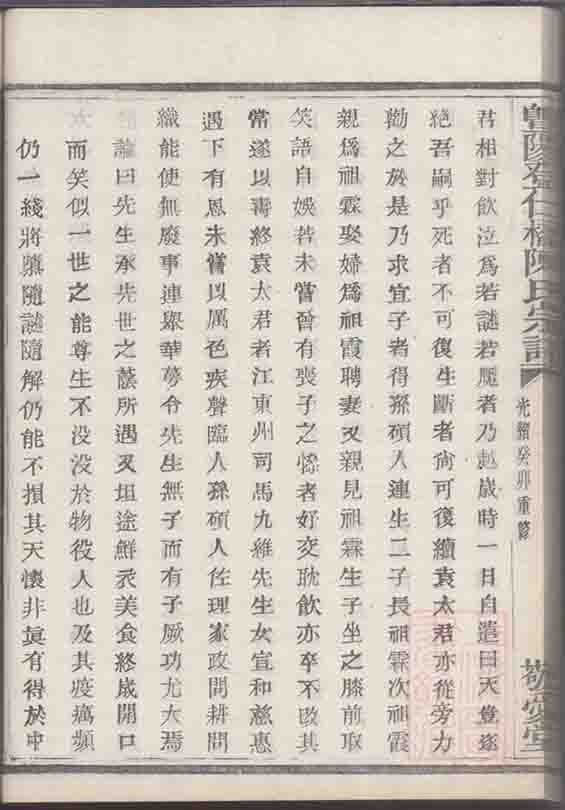 陵仁橋陳氏宗譜
光緒癸卯重修
敬愛堂
君相對飲泣爲若謎若魘者乃越歲時一日自遣曰天豈遂
絕吾嗣乎死者不可復生斷者尙可復續袁太君亦從旁力
勸之於是乃求宜子者得孫碩人連生二子長祖霖次祖霞
親爲祖霖娶婦爲祖霞聘妻又親見祖霖生子坐之膝前取
笑語自娛若未嘗曾有喪子之慘者好交耽飲亦卒不改其
常遂以壽終袁太君者江東州司馬九維先生女宣和慈惠
遇下有恩未嘗以厲色疾聲臨人孫碩人佐理家政問耕問
織能使無廢事連舉華萼令先生無子而有子厥功尤大焉
論曰先生承先世之蔭所遇又坦途鮮衣美食終歲開口
而笑似一世之能尊生不没没於物役人也及其疫癘頻
仍一綫將隳隨謎隨解仍能不損其天懷非眞有得於中